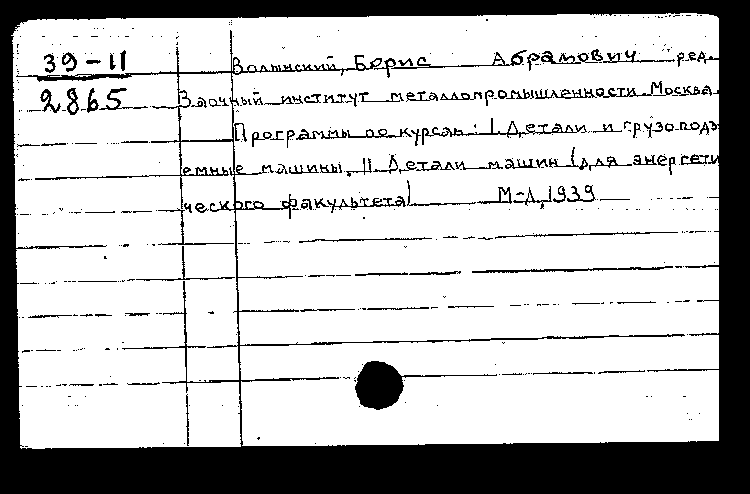 39-11
Волынский, Борис Абрамович ред.
2865
Заочный институт металлопромышленности. Москва.
Программы по курсам: I. Детали и грузоподъ
емные машины. II. Детали машин (для энергети
ческого факультета)
М-Л, 1939